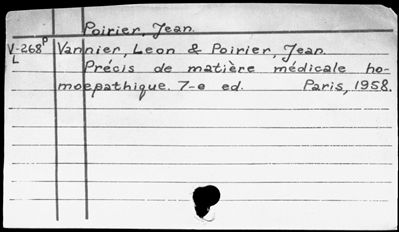 Poirier, Jean.
V-268P Vannier, Leon & Poirier, Jean.
L Précis de matière médicale ho-
moepathique. 7-e ed. Paris, 1958.